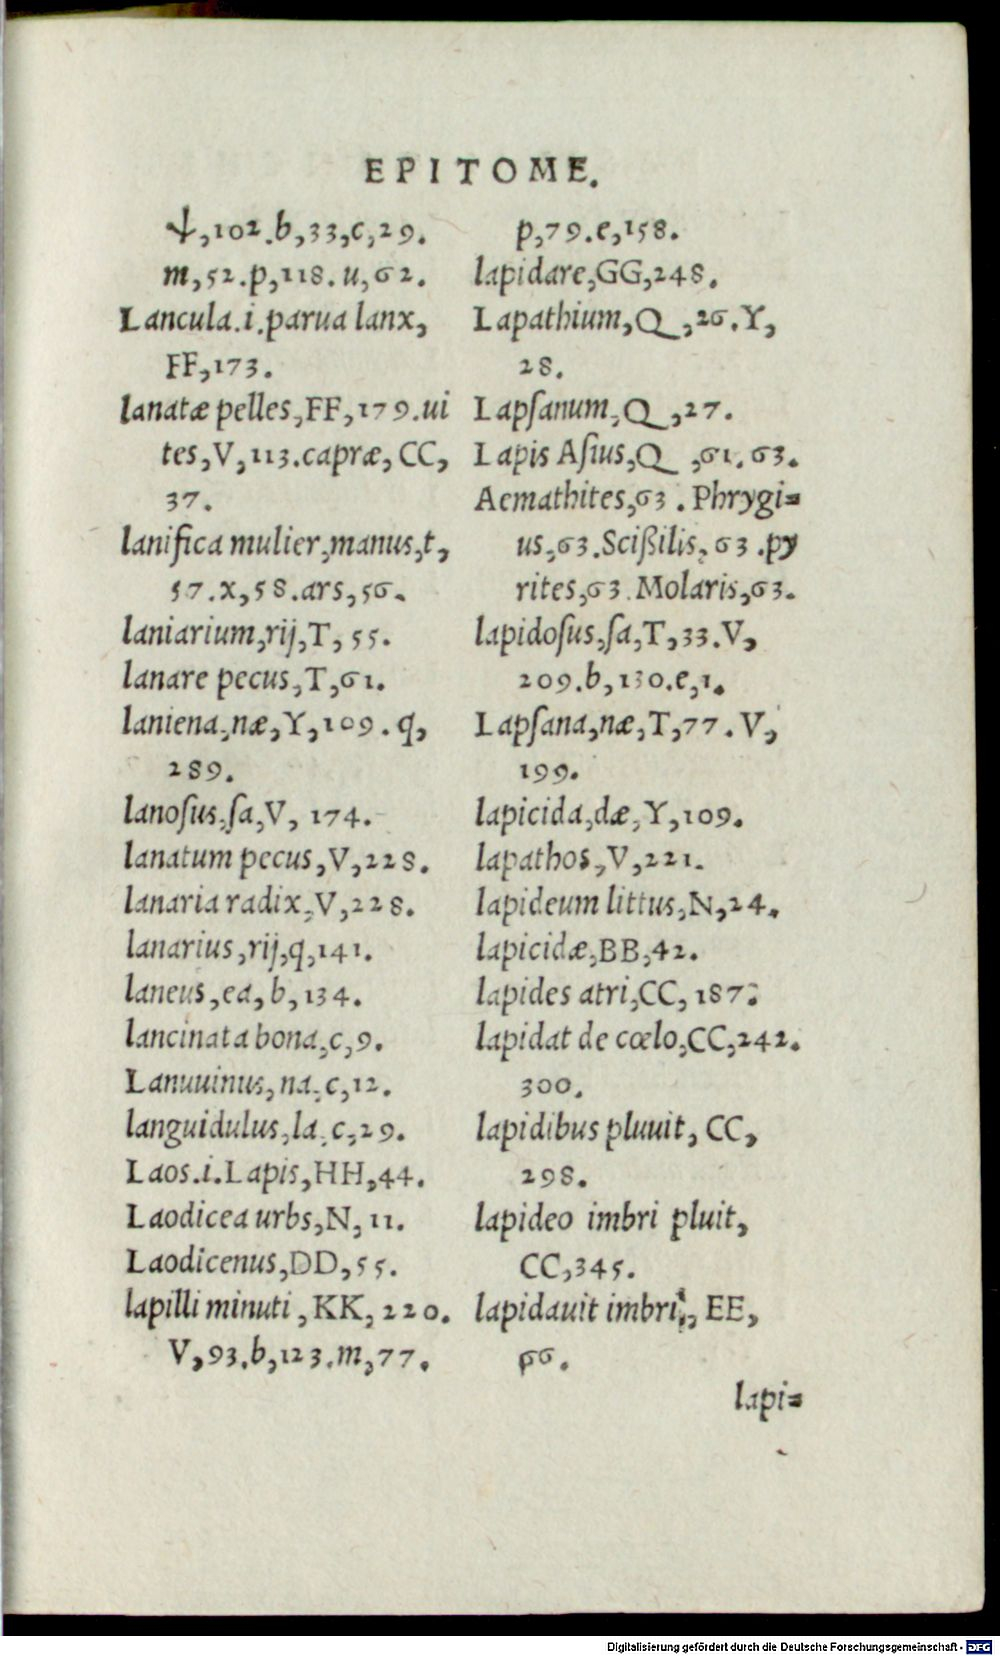 EPITOME.
ψ,102.b,33,c,29.
m,52.p,118.u,62.
Lancula.i.parua lanx,
FF,173.
lanatæ pelles,FF,179.ui
tes,V,113.capræ,CC,
37.
lanifica mulier,manus,t,
57.x,58.ars,56.
laniarium,rij,T,55.
lanare pecus,T,61.
laniena,næ,Y,109.q,
289.
lanoſus,ſa,V,174.
lanatum pecus,V,228.
lanaria radix,V,228.
lanarius,rij,q,141.
laneus,ea,b,134.
lancinata bona,c,9.
Lanuuinus,na,c,12.
languidulus,la,c,29.
Laos.i.Lapis,HH,44.
Laodicea urbs,N,11.
Laodicenus,DD,55.
lapilli minuti,KK,220.
V,93.b,123.m,77.
p,79.e,158.
lapidare,GG,248.
Lapathium,Q,26.Y,
28.
Lapſanum,Q,27.
Lapis Aſius,Q,61.63.
Aemathites,63.Phrygi=
us,63.Scißilis,63.py
rites,63.Molaris,63.
lapidoſus,ſa,T,33.V,
209.b,130.e,1.
Lapſana,næ,T,77.V,
199.
lapicida,dæ,Y,109.
lapathos,V,221.
lapideum littus,N,24.
lapicidæ,BB,42.
lapides atri,CC,187.
lapidat de cœlo,CC,242.
300.
lapidibus pluuit,CC,
298.
lapideo imbri pluit,
CC,345.
lapidauit imbri,EE,
66.
lapi=
Digitalisierung gefördert durch die Deutsche Forschungsgemeinschaft - DFG